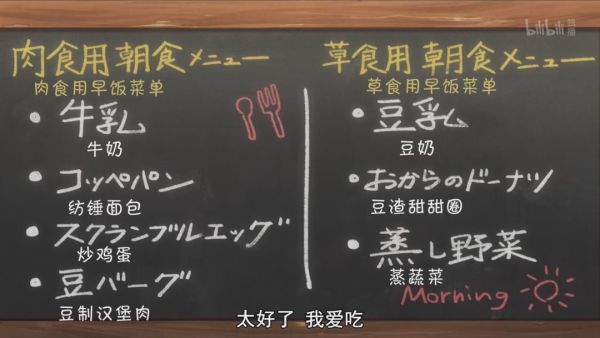 bilibili 独播
肉食用 朝食メニュー
肉食用早饭菜单
・牛乳
牛奶
・コッペパン
纺锤面包
・スクランブルエッグ
炒鸡蛋
・豆バーグ
豆制汉堡肉
草食用 朝食メニュー
草食用早饭菜单
・豆乳
豆奶
・おからのドーナツ
豆渣甜甜圈
・蒸し野菜
蒸蔬菜
Morning
太好了 我爱吃